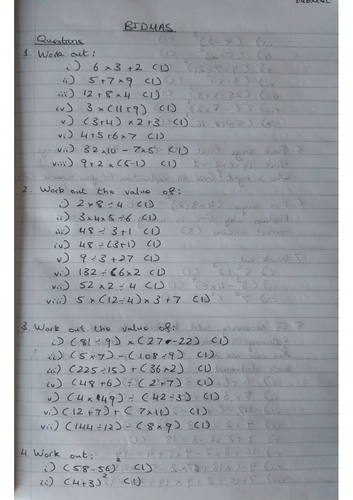 BIDMAS
Questions
1. Work out:
i) 6 × 3 + 2 (1)
ii) 5 + 7 × 9 (1)
iii) 12 ÷ 8 × 4 (1)
iv) 3 × (11 + 9) (1)
v) (3+4) × 2 + 3 (1)
vi) 4 + 5 + 6 × 7 (1)
vii) 32 × 10 - 7 × 5 (1)
viii) 9 + 2 × (5-1) (1)
2. Work out the value of:
i) 2 × 8 ÷ 4 (1)
ii) 3 × 4 × 5 ÷ 6 (1)
iii) 48 ÷ 3 + 1 (1)
iv) 48 ÷ (3+1) (1)
v) 9 ÷ 3 + 27 (1)
vi) 132 ÷ (6 × 2 (1)
vii) 52 × 2 ÷ 4 (1)
viii) 5 × (12 ÷ 4) × 3 + 7 (1)
3. Work out the value of:
i) (81 ÷ 9) × (27 - 22) (1)
ii) (5 × 7) - (108 ÷ 9) (1)
iii) (225 ÷ 15) + (36 × 2) (1)
iv) (48 + 6) ÷ (2 + 7) (1)
v) (4 × 49) ÷ (42 ÷ 3) (1)
vi) (12 + 7) + (7 × 11) (1)
vii) (144 ÷ 12) - (8 × 9) (1)
4. Work out:
i) (58 - 56)² (1)
ii) (4+3)² (1)